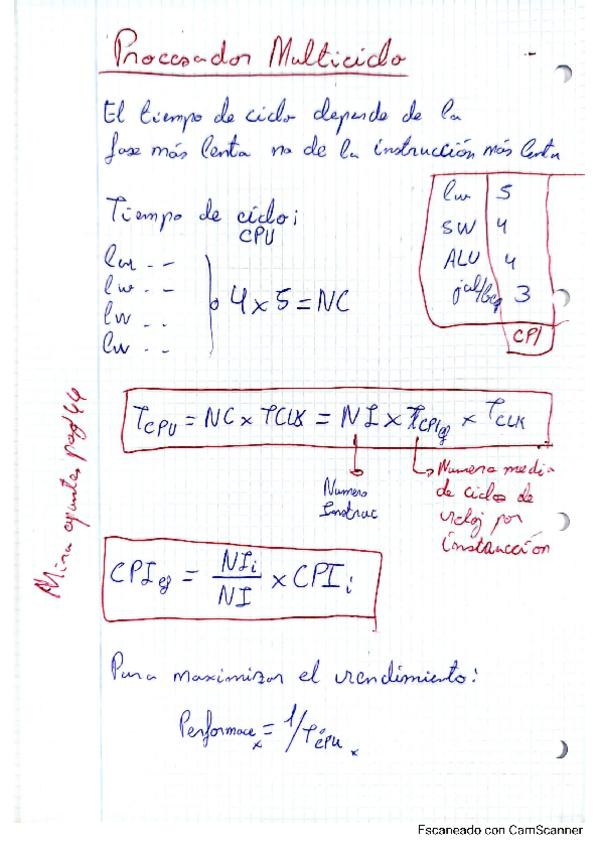 Procesador Multiciclo
El tiempo de ciclo depende de la
fase más lenta no de la instrucción más lenta
Tiempo de ciclo;
CPU
lw - -
lw - -
lw - -
lw - -
4 x 5 = NC
lw 5
SW 4
ALU 4
jal/beq 3
CPI
TCPU = NC x TCLK = NI x CPIeq x TCLK
Numero
Instruc
Numero medio
de ciclos de
reloj por
instrucción
Mira apuntes pag 44
CPIeq = NIi/NI x CPIi
Para maximizar el rendimiento:
Performacex = 1/TCPUx
Escaneado con CamScanner